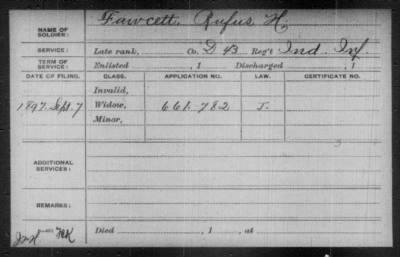 NAME OF SOLDIER: Fawcett, Rufus H.
SERVICE: Late rank, Co. D 43 Reg't Ind. Inf.
TERM OF SERVICE: Enlisted , 1 Discharged , 1
DATE OF FILING. CLASS. APPLICATION NO. LAW. CERTIFICATE NO.
Invalid,
1897. Sept. 7 Widow, 661.782 J.
Minor,
ADDITIONAL SERVICES:
REMARKS:
Died , 1 , at